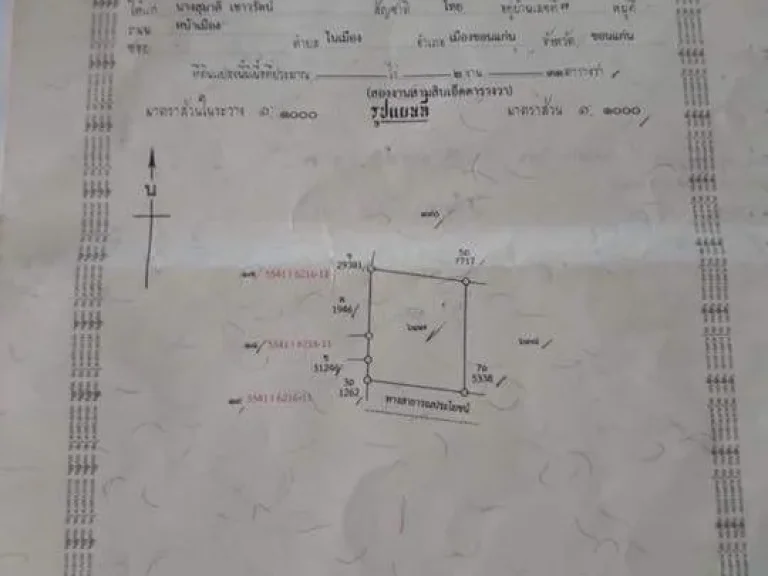 ให้แก่ นางสุมาลี เชาวรัตน์ สัญชาติ ไทย อยู่บ้านเลขที่ หมู่ที่
ถนน หน้าเมือง
ตำบล ในเมือง อำเภอ เมืองขอนแก่น จังหวัด ขอนแก่น
ที่ดินแปลงนี้มีเนื้อที่ประมาณ ไร่ ๒ งาน ๓๑ ตารางวา
(สองงานสามสิบเอ็ดตารางวา)
มาตราส่วนในระวาง ๑: ๑๐๐๐ รูปแผนที่ มาตราส่วน ๑: ๑๐๐๐
น
ช
29381
5ด
7717
5541 I 6216-13
1946
5541 I 6216-13
ช
3129
3อ
1262
7อ
5338
5541 I 6216-13
ทางสาธารณประโยชน์